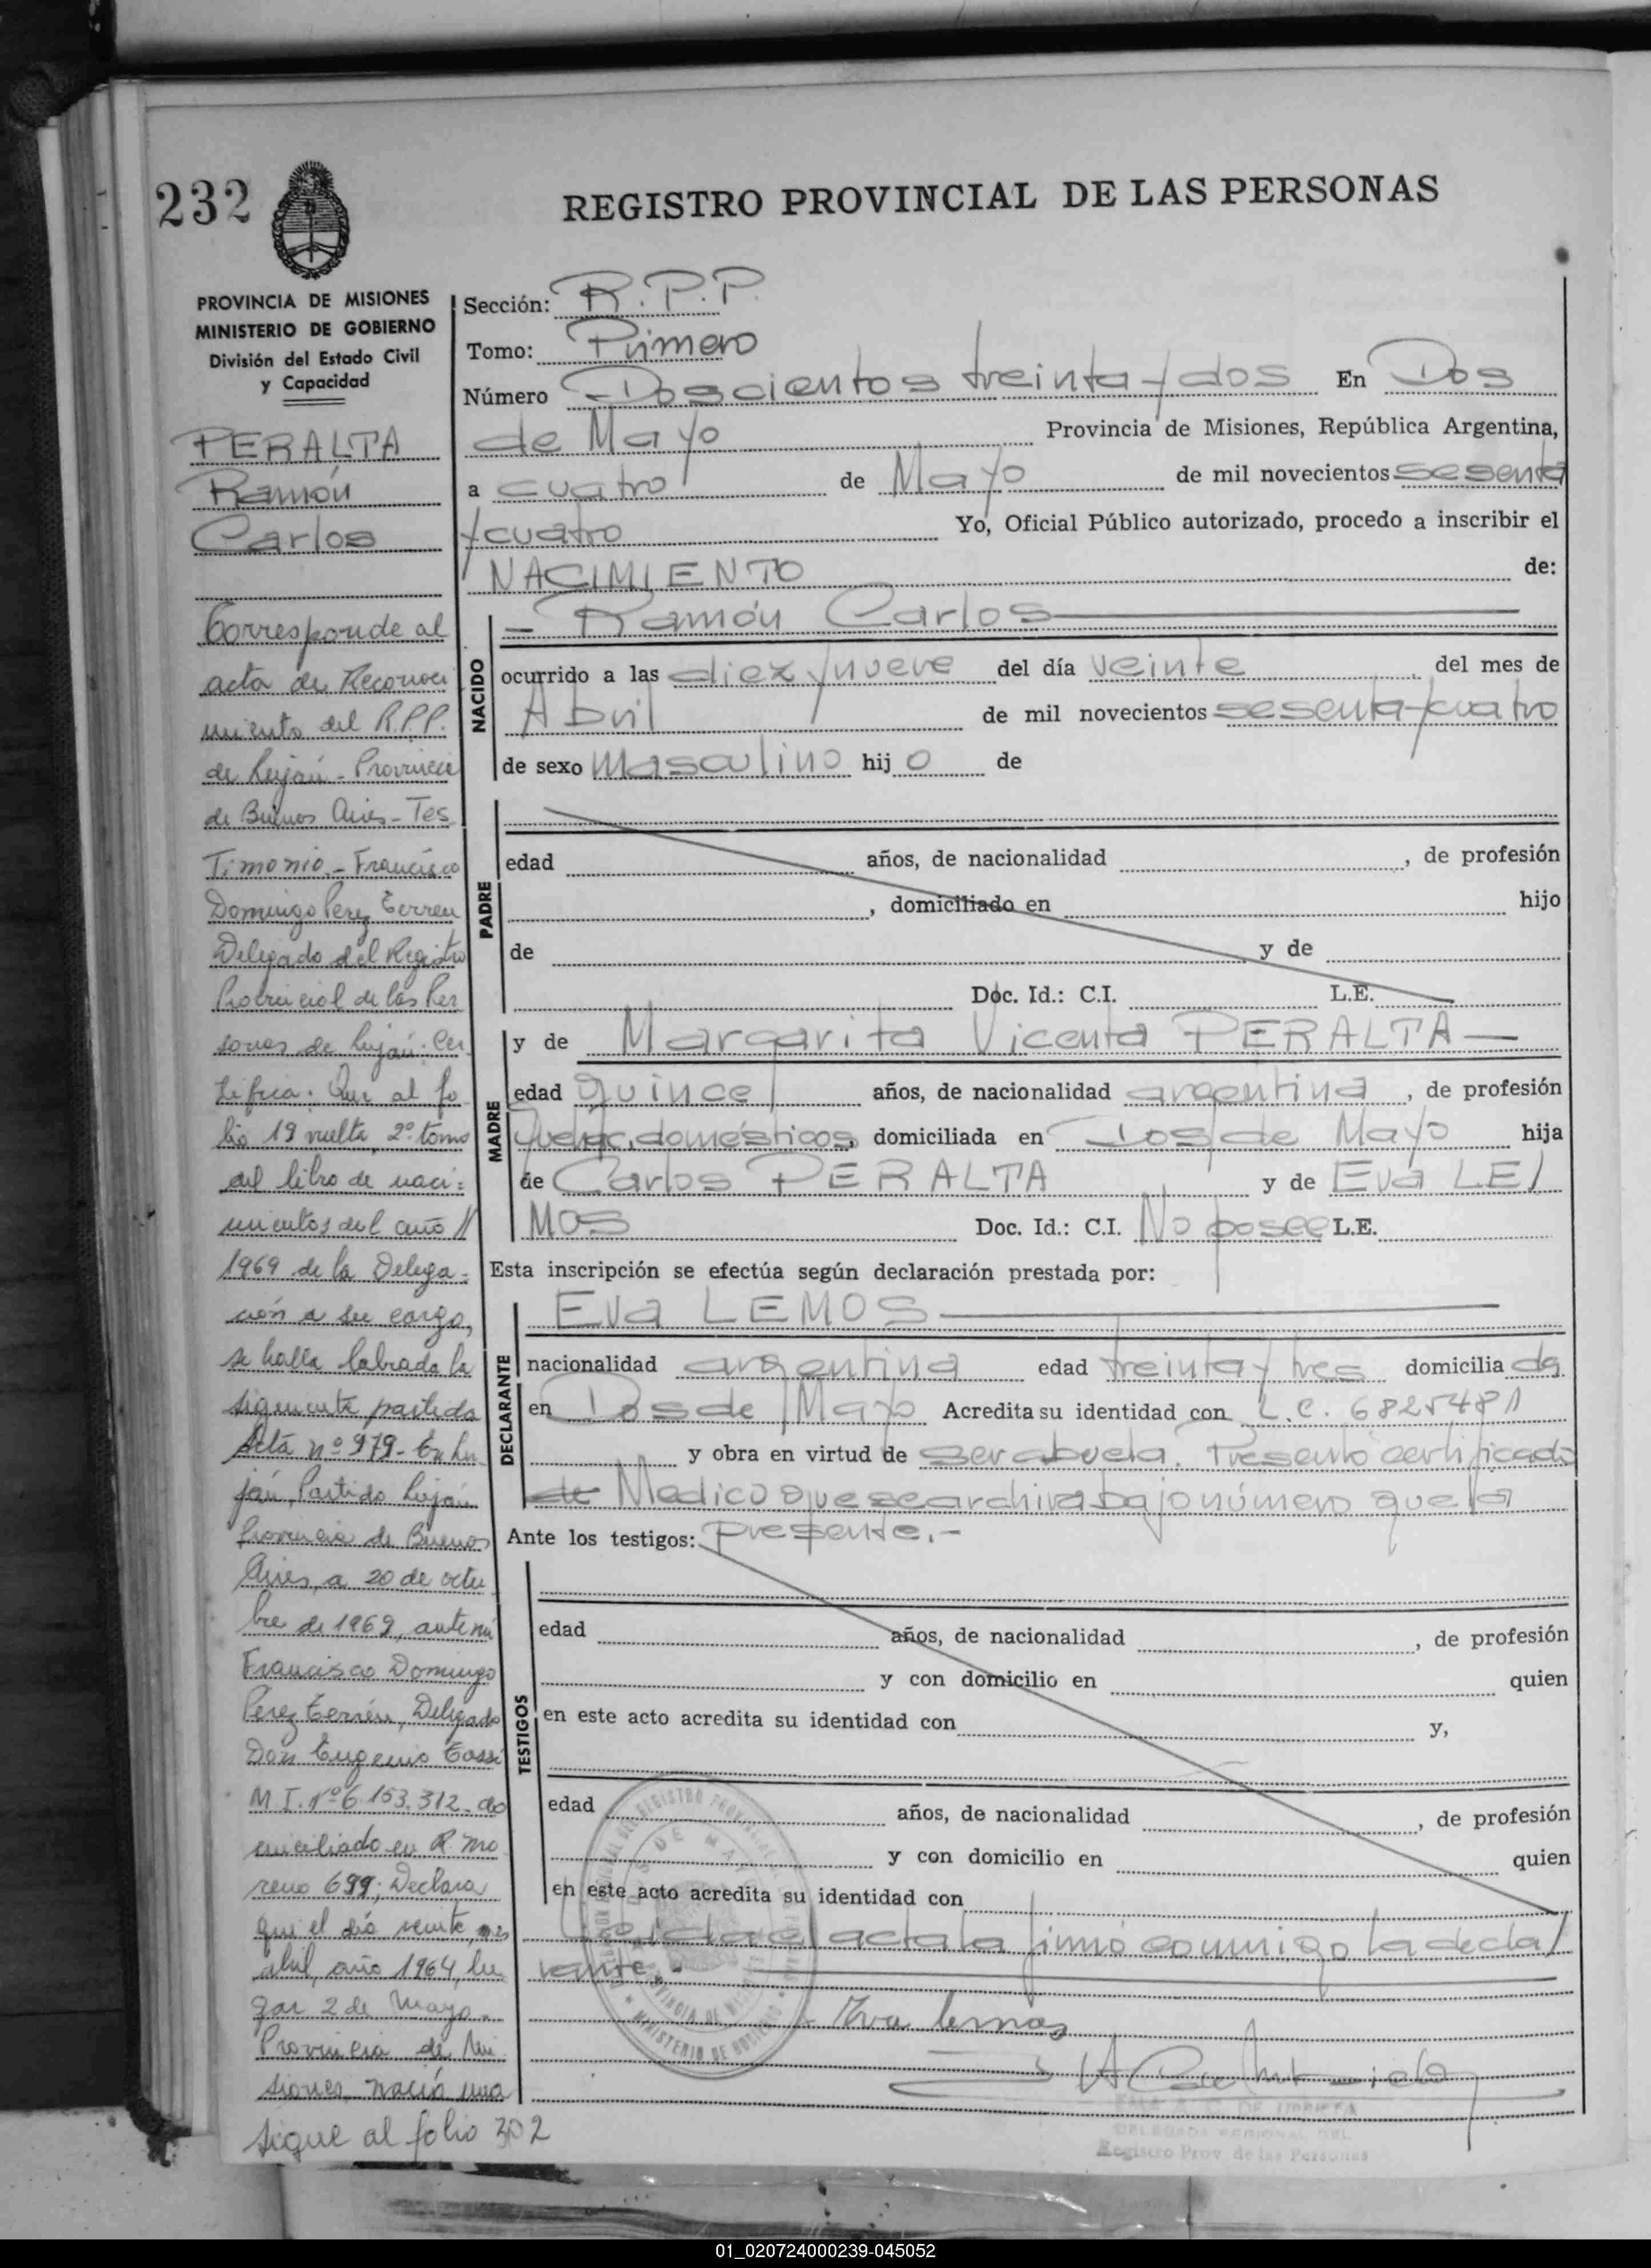 232
REGISTRO PROVINCIAL DE LAS PERSONAS
PROVINCIA DE MISIONES
MINISTERIO DE GOBIERNO
División del Estado Civil
y Capacidad
PERALTA
Ramón
Carlos
Corresponde al
acta de Reconoci
miento del R.P.P.
de Luján - Provincia
de Buenos Aires - Tes
Timonio. - Francisco
Domingo Perez Terren
Delegado del Registro
Provincial de las Per
sonas de Luján: Cer
tifica: Que al fo
lio 19 vuelta, 2º tomo
del libro de naci=
mientos del año //
1969 de la Delega=
ción a su cargo,
se halla labrada la
siguiente partida
Acta nº 979 - En Lu
ján, Partido Luján
Provincia de Buenos
Aires, a 20 de octu
bre de 1969, ante mi
Francisco Domingo
Pérez Terrén, Delegado
Don Eugenio
M.I. Nº 6.153.312. do
miciliado en R. Mo
reno 699; Declara
que el día veinte, mes
abril, año 1964, lu
gar 2 de Mayo -
Provincia de Mi
siones, nació una
sigue al folio 302
Sección: R.P.P.
Tomo: Primero
Número Doscientos treinta y dos En Dos
de Mayo Provincia de Misiones, República Argentina,
a cuatro de Mayo de mil novecientos sesenta
y cuatro Yo, Oficial Público autorizado, procedo a inscribir el
NACIMIENTO de:
NACIDO
- Ramón Carlos
ocurrido a las diez y nueve del día veinte, del mes de
Abril de mil novecientos sesenta y cuatro
de sexo masculino hijo de
PADRE
edad años, de nacionalidad , de profesión
, domiciliado en hijo
de y de
Doc. Id.: C.I. L.E.
MADRE
y de Margarita Vicenta PERALTA
edad quince años, de nacionalidad argentina, de profesión
quehac. domésticos, domiciliada en Dos de Mayo hija
de Carlos PERALTA y de Eva LE/
MOS Doc. Id.: C.I. No posee L.E.
Esta inscripción se efectúa según declaración prestada por:
DECLARANTE
Eva LEMOS
nacionalidad argentina edad treinta y tres domiciliada
en Dos de Mayo Acredita su identidad con L.C. 6825481
y obra en virtud de ser abuela. Presentó certificado
de Medico que se archiva bajo número que la
Ante los testigos: presente.-
TESTIGOS
edad años, de nacionalidad , de profesión
y con domicilio en quien
en este acto acredita su identidad con y,
edad años, de nacionalidad , de profesión
y con domicilio en quien
en este acto acredita su identidad con
Leida el acta la firmó conmigo la decla/
rante.
Eva lemos
DELEGADA REGIONAL DEL
Registro Prov. de las Personas
01_020724000239-045052